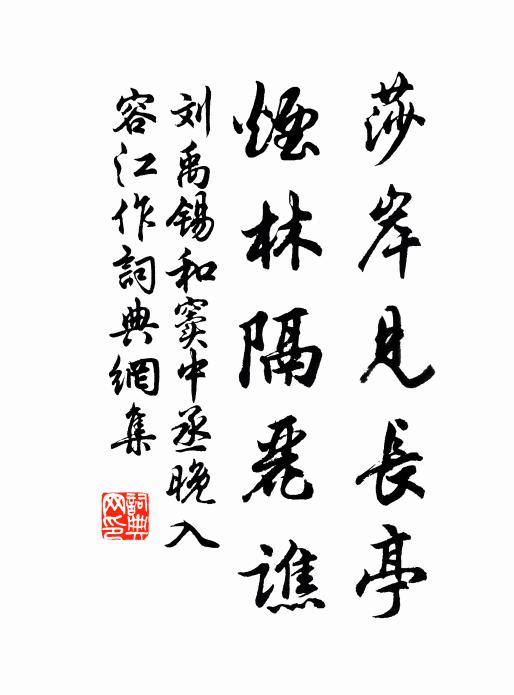 莎岸見長亭
煙林隔麗譙
刘禹锡和窦中丞晚入
容江作詞典網集
詞典
网印